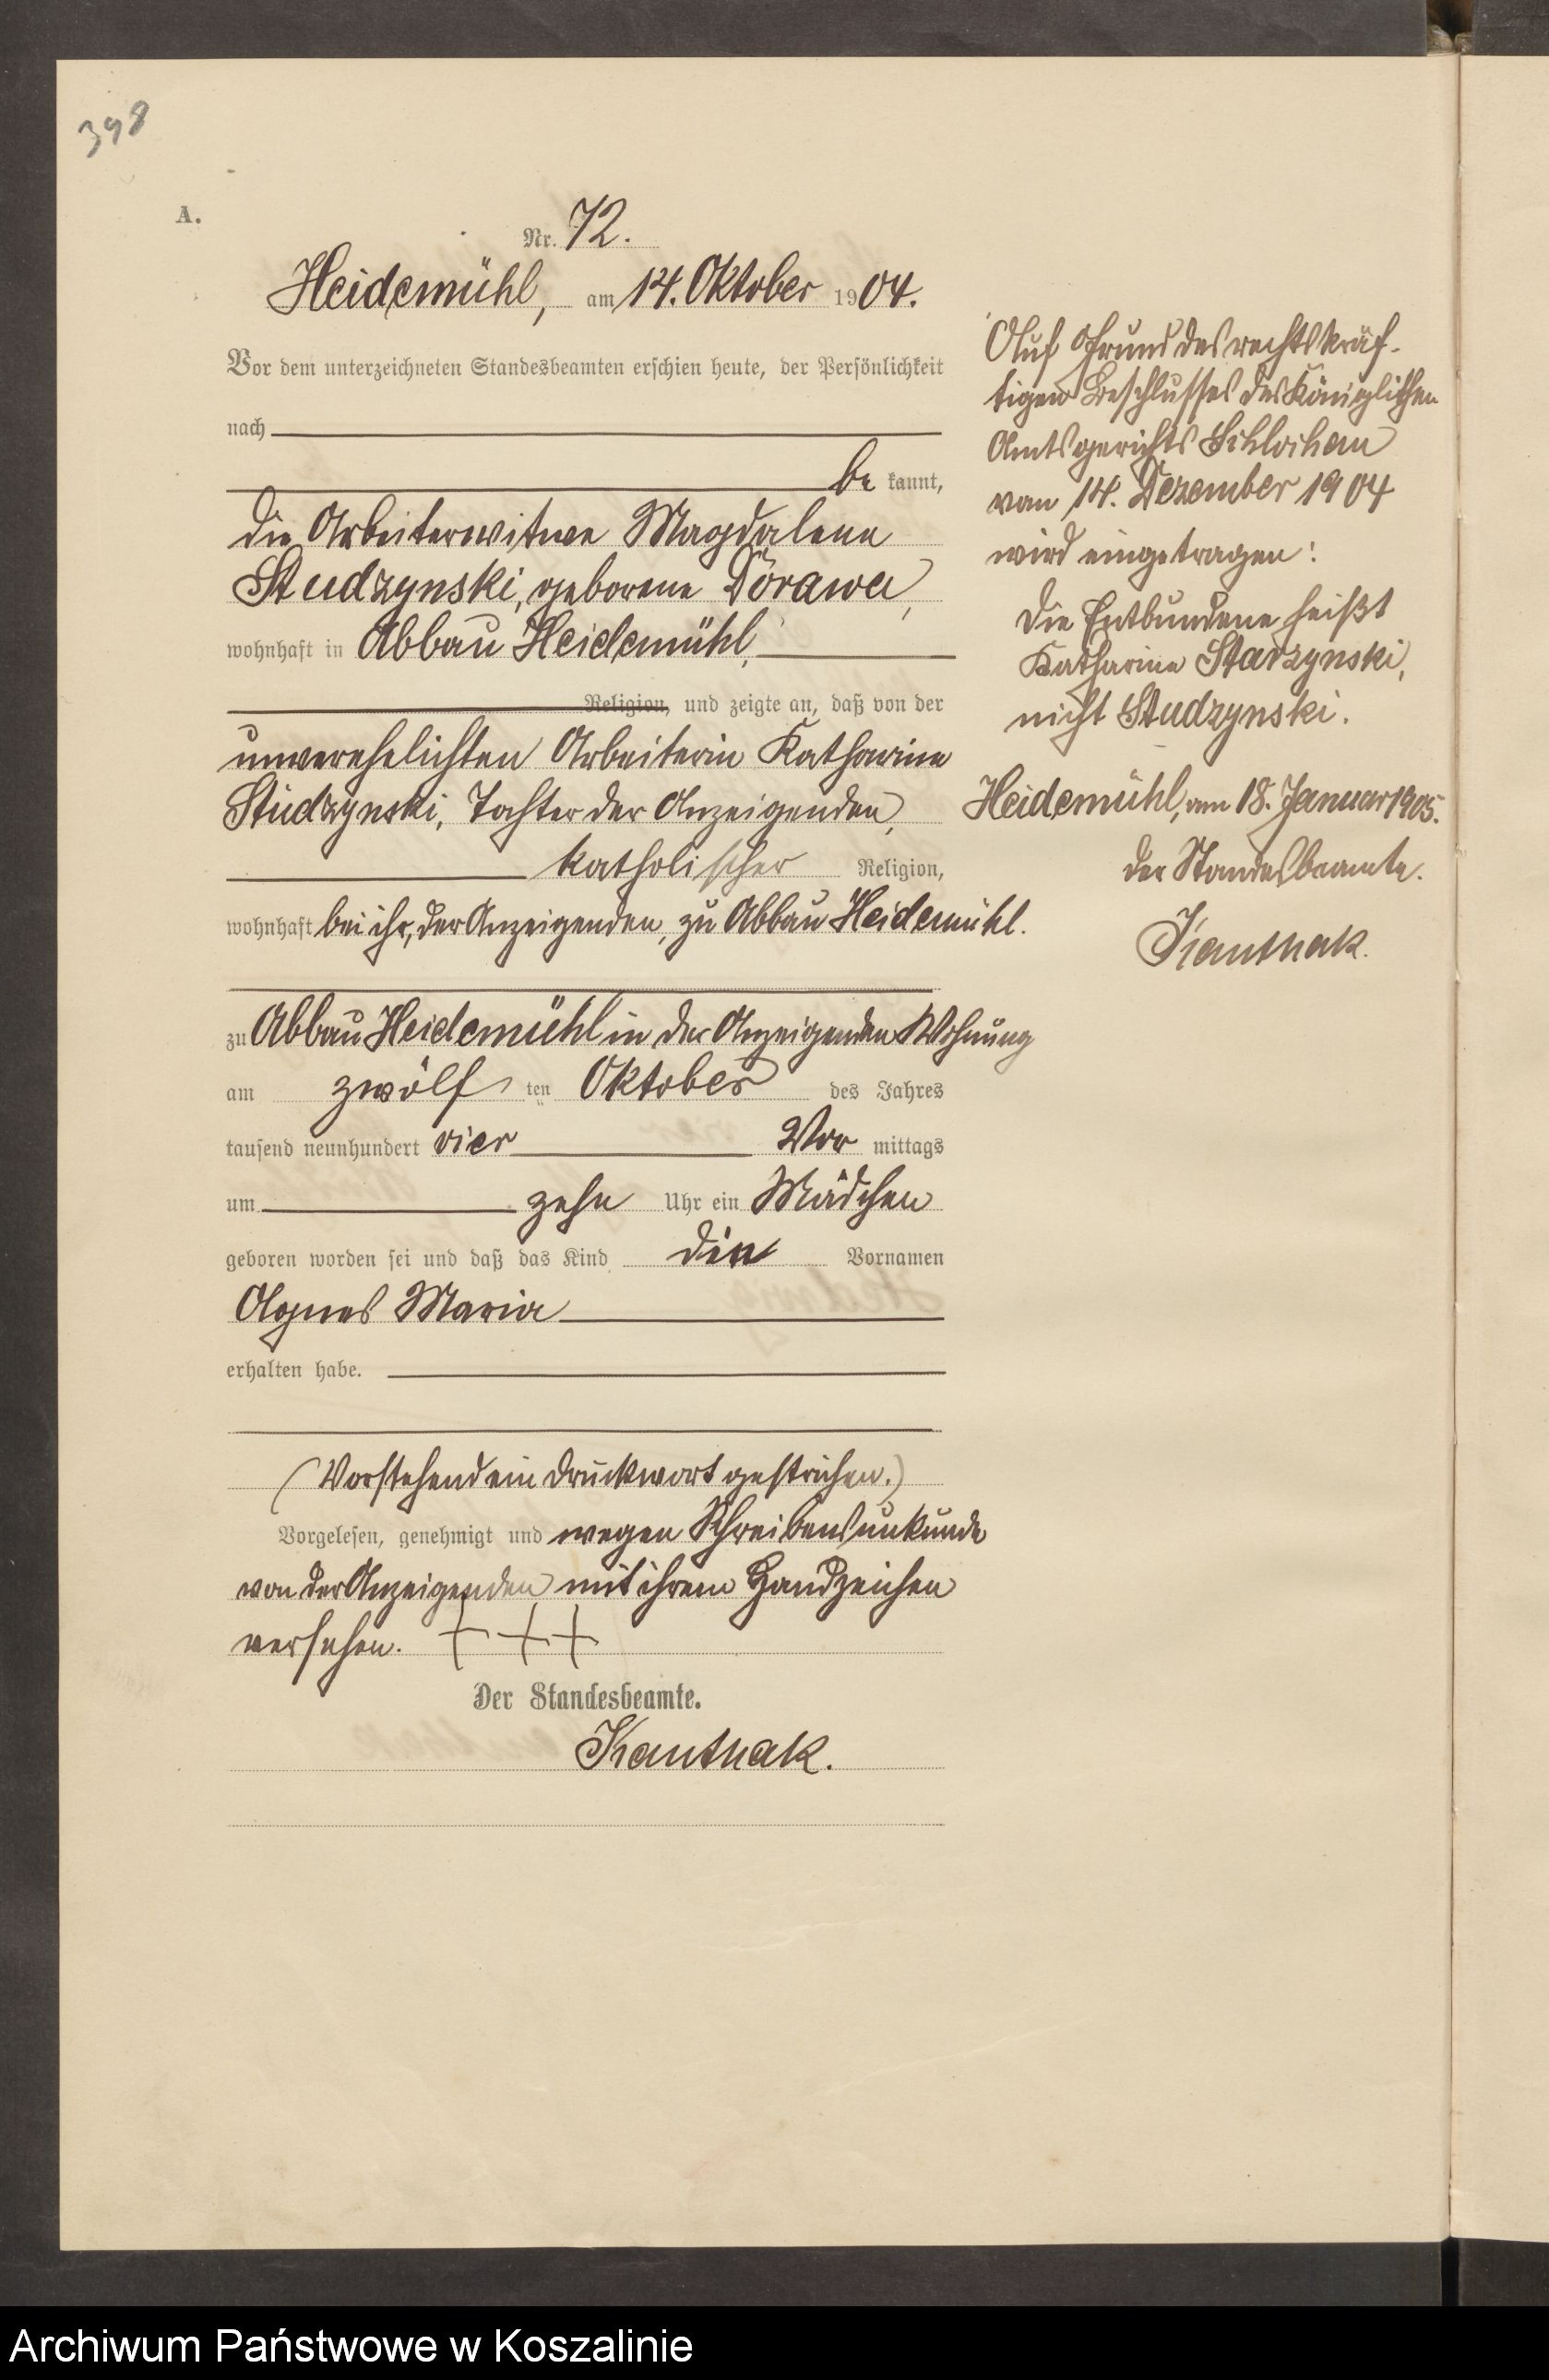 398
A.
Nr. 72.
Heidemühl, am 14. Oktober 1904.
Vor dem unterzeichneten Standesbeamten erschien heute, der Persönlichkeit
nach
be kannt,
die Arbeiterwitwe Magdalena
Studzynski, geborene Dorawa,
wohnhaft in Abbau Heidemühl,
Religion, und zeigte an, daß von der
unverehelichten Arbeiterin Katharina
Studzynski, Tochter der Anzeigenden,
katholischer Religion,
wohnhaft bei ihr, der Anzeigenden, zu Abbau Heidemühl.
zu Abbau Heidemühl in der Anzeigenden Wohnung
am zwölf ten Oktober des Jahres
tausend neunhundert vier Vor mittags
um zehn Uhr ein Mädchen
geboren worden sei und daß das Kind die Vornamen
Agnes Maria
erhalten habe.
(Vorstehend ein Druckwort gestrichen.)
Vorgelesen, genehmigt und wegen Schreibensunkunde
von der Anzeigenden mit ihrem Handzeichen
versehen. + + +
Der Standesbeamte.
Kauthak.
Auf Grund des rechtskräf-
tigen Beschlusses des Königlichen
Amtsgerichts Schlochau
vom 14. Dezember 1904
wird eingetragen:
Die Entbundene heißt
Katharina Starzynski,
nicht Studzynski.
Heidemühl, am 18. Januar 1905.
Der Standesbeamte.
Kauthak.
Archiwum Państwowe w Koszalinie